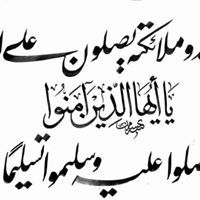 وملائكته يصلون على
يَا أَيُّهَا الَّذِينَ آمَنُوا
صلوا عليه وسلموا تسليما